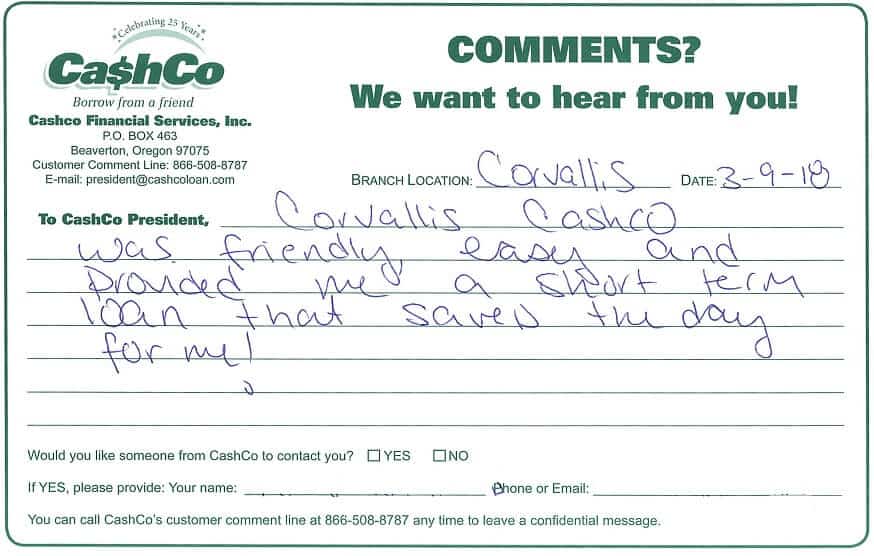 Celebrating 25 Years
Ca$hCo
Borrow from a friend
Cashco Financial Services, Inc.
P.O. BOX 463
Beaverton, Oregon 97075
Customer Comment Line: 866-508-8787
E-mail: president@cashcoloan.com
COMMENTS?
We want to hear from you!
BRANCH LOCATION: Corvallis DATE: 3-9-18
To CashCo President, Corvallis Cashco
was friendly, easy and
Provided me a short term
loan that saved the day
for me!
Would you like someone from CashCo to contact you? ☐ YES ☐ NO
If YES, please provide: Your name: Phone or Email:
You can call CashCo's customer comment line at 866-508-8787 any time to leave a confidential message.